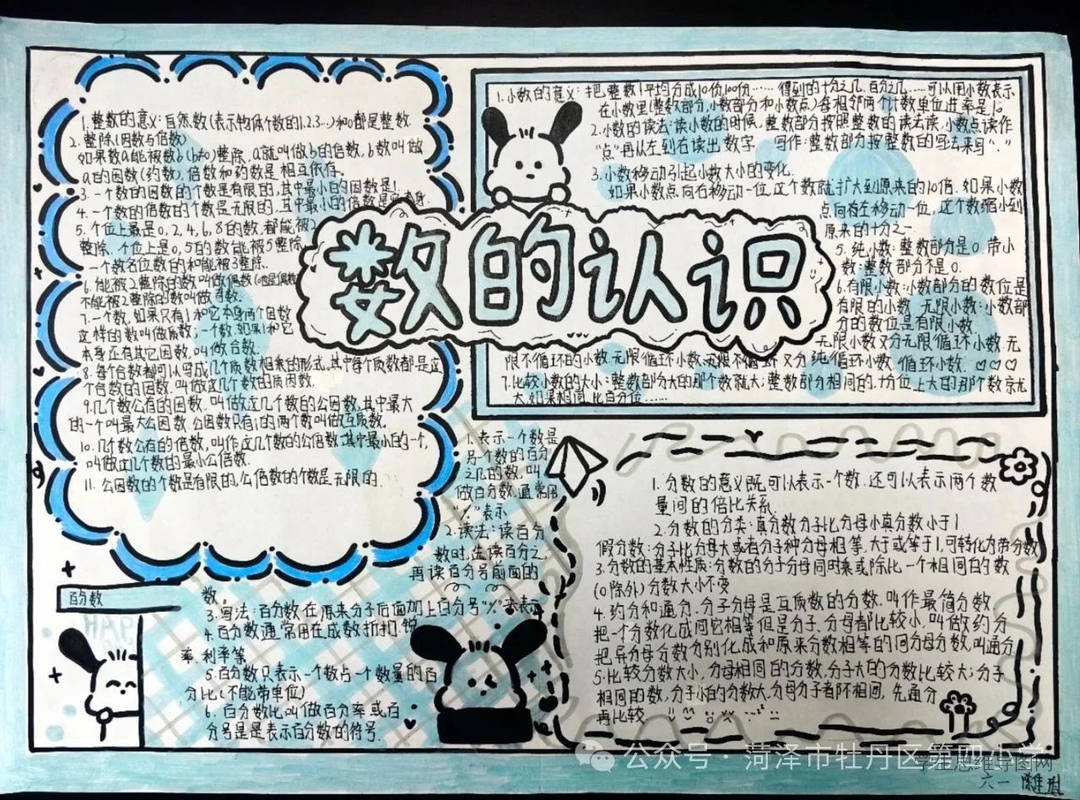 数的认识
1.整数的意义:自然数(表示物体个数的1.2.3…)和0都是整数
2.整除(因数与倍数)
如果数a能被数b(b≠0)整除,a就叫做b的倍数,b数叫做
a的因数(约数),倍数和约数是相互依存。
3.一个数的因数的个数是有限的,其中最小的因数是1.
4.一个数的倍数的个数是无限的,其中最小的倍数是
5.个位上是0,2,4,6,8的数,都能被2
整除.个位上是0,5的数能被5整除
一个数各位数的和能被3整除.
6.能被2整除的数叫做偶数
不能被2整除的数叫做奇数.
7.一个数,如果只有1和它本身两个因数
这样的数叫做质数;一个数,如果1和它
本身还有其它因数,叫做合数.
8.每个合数都可以写成几个质数相乘的形式,其中每个质数都是这
个合数的因数,叫做这几个数的质因数.
9.几个数公有的因数,叫做这几个数的公因数,其中最大
的一个叫最大公因数,公因数只有1的两个数叫做互质数.
10.几个数公有的倍数,叫作这几个数的公倍数:其中最小的一个,
叫做这几个数的最小公倍数.
11.公因数的个数是有限的,公倍数的个数是无限的.
1.小数的意义:把整数1平均分成10份,100份……得到的十分之几,百分之几……可以用小数表示
在小数里(整数部分,小数部分和小数点)每相邻两个计数单位进率是10
2.小数的读法:读小数的时候,整数部分按照整数的读法读,小数点读作
"点"再从左到右读出数字 写作:整数部分按整数的写法来写"."
3.小数移动引起小数大小的变化.
如果小数点向右移动一位,这个数就扩大到原来的10倍.如果小数
点向右左移动一位,这个数缩小到
原来的十分之一
5.纯小数:整数部分是0.带小
数:整数部分不是0.
6.有限小数:小数部分的数位是
有限的小数 无限小数:小数部
分的数位是有限小数
无限小数又分无限循环小数,无
限不循环的小数.无限循环小数 又分纯循环小数,循环小数.
7.比较小数的大小:整数部分大的那个数就大;整数部分相同的,十分位上大的那个数就
大,如果相同,比百分位……
百分数
1.表示一个数是
另一个数的百分
之几的数,叫
做百分数,通常用
"%"表示
2.读法:读百分
数时,先读百分之,
再读百分号前面的
数.
3.写法:百分数在原来分子后面加上百分号"%"来表示
4.百分数通常用在成数折扣,税
率,利率等
5.百分数只表示一个数占一个数量的百
分比(不能带单位)
6.百分数比叫做百分率或百
分号是是表示百分数的符号.
1.分数的意义既可以表示一个数.还可以表示两个数
量间的倍比关系.
2.分数的分类:真分数分子比分母小真分数小于1
假分数:分子比分母大或者分子种分母相等,大于或等于1,可转化为带分数
3.分数的基本性质:分数的分子分母同时乘或除比一个相同的数
(0除外)分数大小不变
4.约分和通分.分子分母是互质数的分数,叫作最简分数,
把一个分数化成同它相等但是分子,分母都比较小,叫做约分
把异分母分数分别化成和原来分数相等的同分母分数,叫通分.
5.比较分数大小,分母相同的分数,分子大的分数比较大;分子
相同的数,分子小的分数大,分母分子都不相同,先通分
再比较
公众号·菏泽市牡丹区第四小学
学生思维导图网
六一